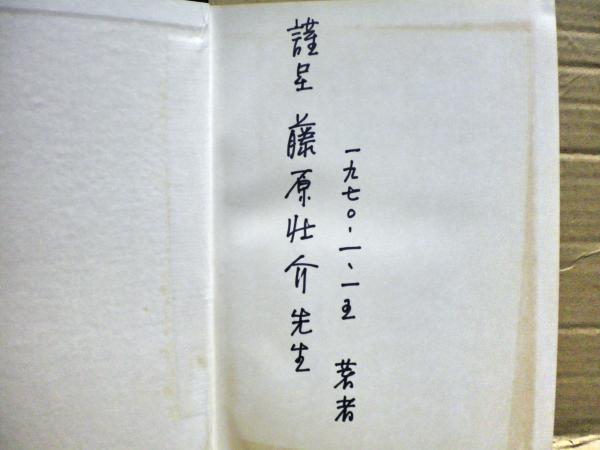 謹呈 藤原壮介先生
一九七〇、一、一五 著者